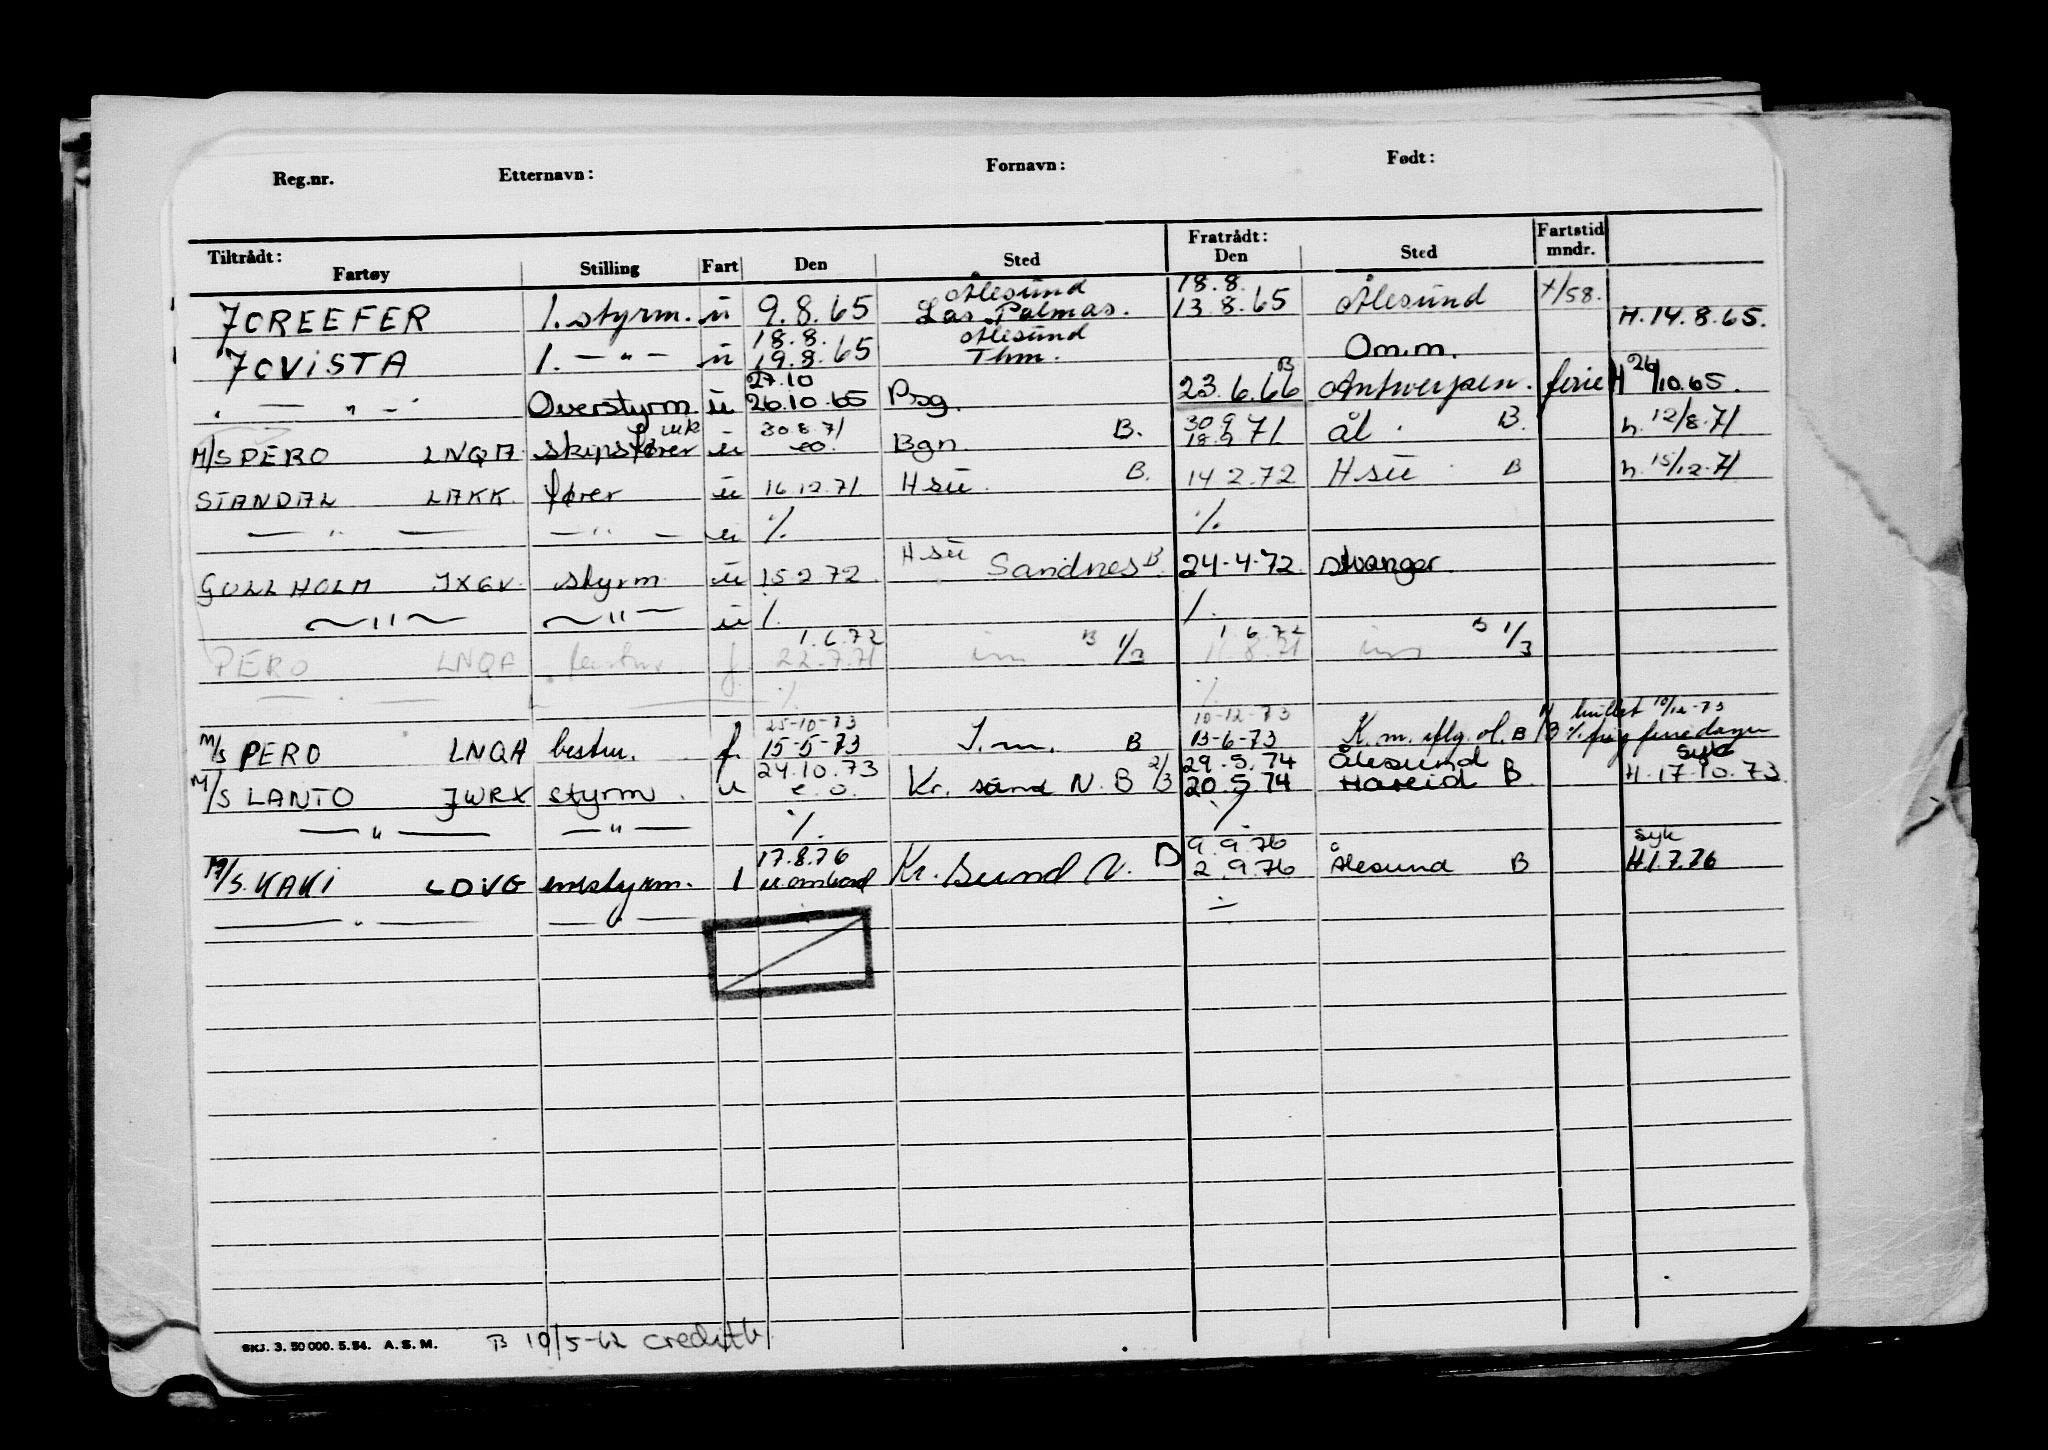 Reg.nr. Etternavn: Fornavn: Født:
Tiltrådt: Fratrådt: Fartstid
Fartøy Stilling Fart Den Sted Den Sted mndr.
Ålesund 18.8.
JOREEFER 1. styrm. ü 9.8.65 Las Palmas. 13.8.65 Ålesund x/58. H.14.8.65.
18.8. Ålesund
JOVISTA 1. — " — ü 19.8.65 Thm. Om.m.
27.10 B
— " — Overstyrm. ü 26.10.65 Psg. 23.6.66 Antwerpen. ferie H 26/10.65.
vik 30.8.71 30 9
M/S PERO LNQA skipsfører ü eo. Bgn. B. 18.9 71 ål. B. h. 12/8.71
STANDAL LAKK. fører ü 16.12.71 Hsü. B. 14 2.72 Hsü B h. 15/12.71
— " — — " — ü ./. ./.
Hsü
GULLHOLM JXGV. styrm ü 15.2.72. Sandnes B. 24-4-72. stvanger.
— " — — " — ü ./. ./.
1.6.72 1.6.72
PERO LNQA bestur f. 22.7.71 im B 1/3 11.8.71 im B 1/3
— " — ./. ./.
25-10-73 10-12-73 10/12-73
M/S PERO LNQA bestur. f. 15-5-73 I.m. B 13-6-73 K.m. iflg. ol. B feriedager
24.10.73 2/3 29.5.74 Ålesund syk
M/S LANTO JWRX styrm. u e.o. Kr. sand N. B 20.5 74 Hareid B H.17.10.73.
— " — — " — ./. ./.
17.8.76 9.9.76 syk
M/S. KAKI LDVG enestyrm. 1 Kr. Sund N. B 2.9.76 Ålesund B H1.7.76
— " — — " — ÷
SKJ. 3. 50 000. 5. 54. A. S. M. B 19/5-62